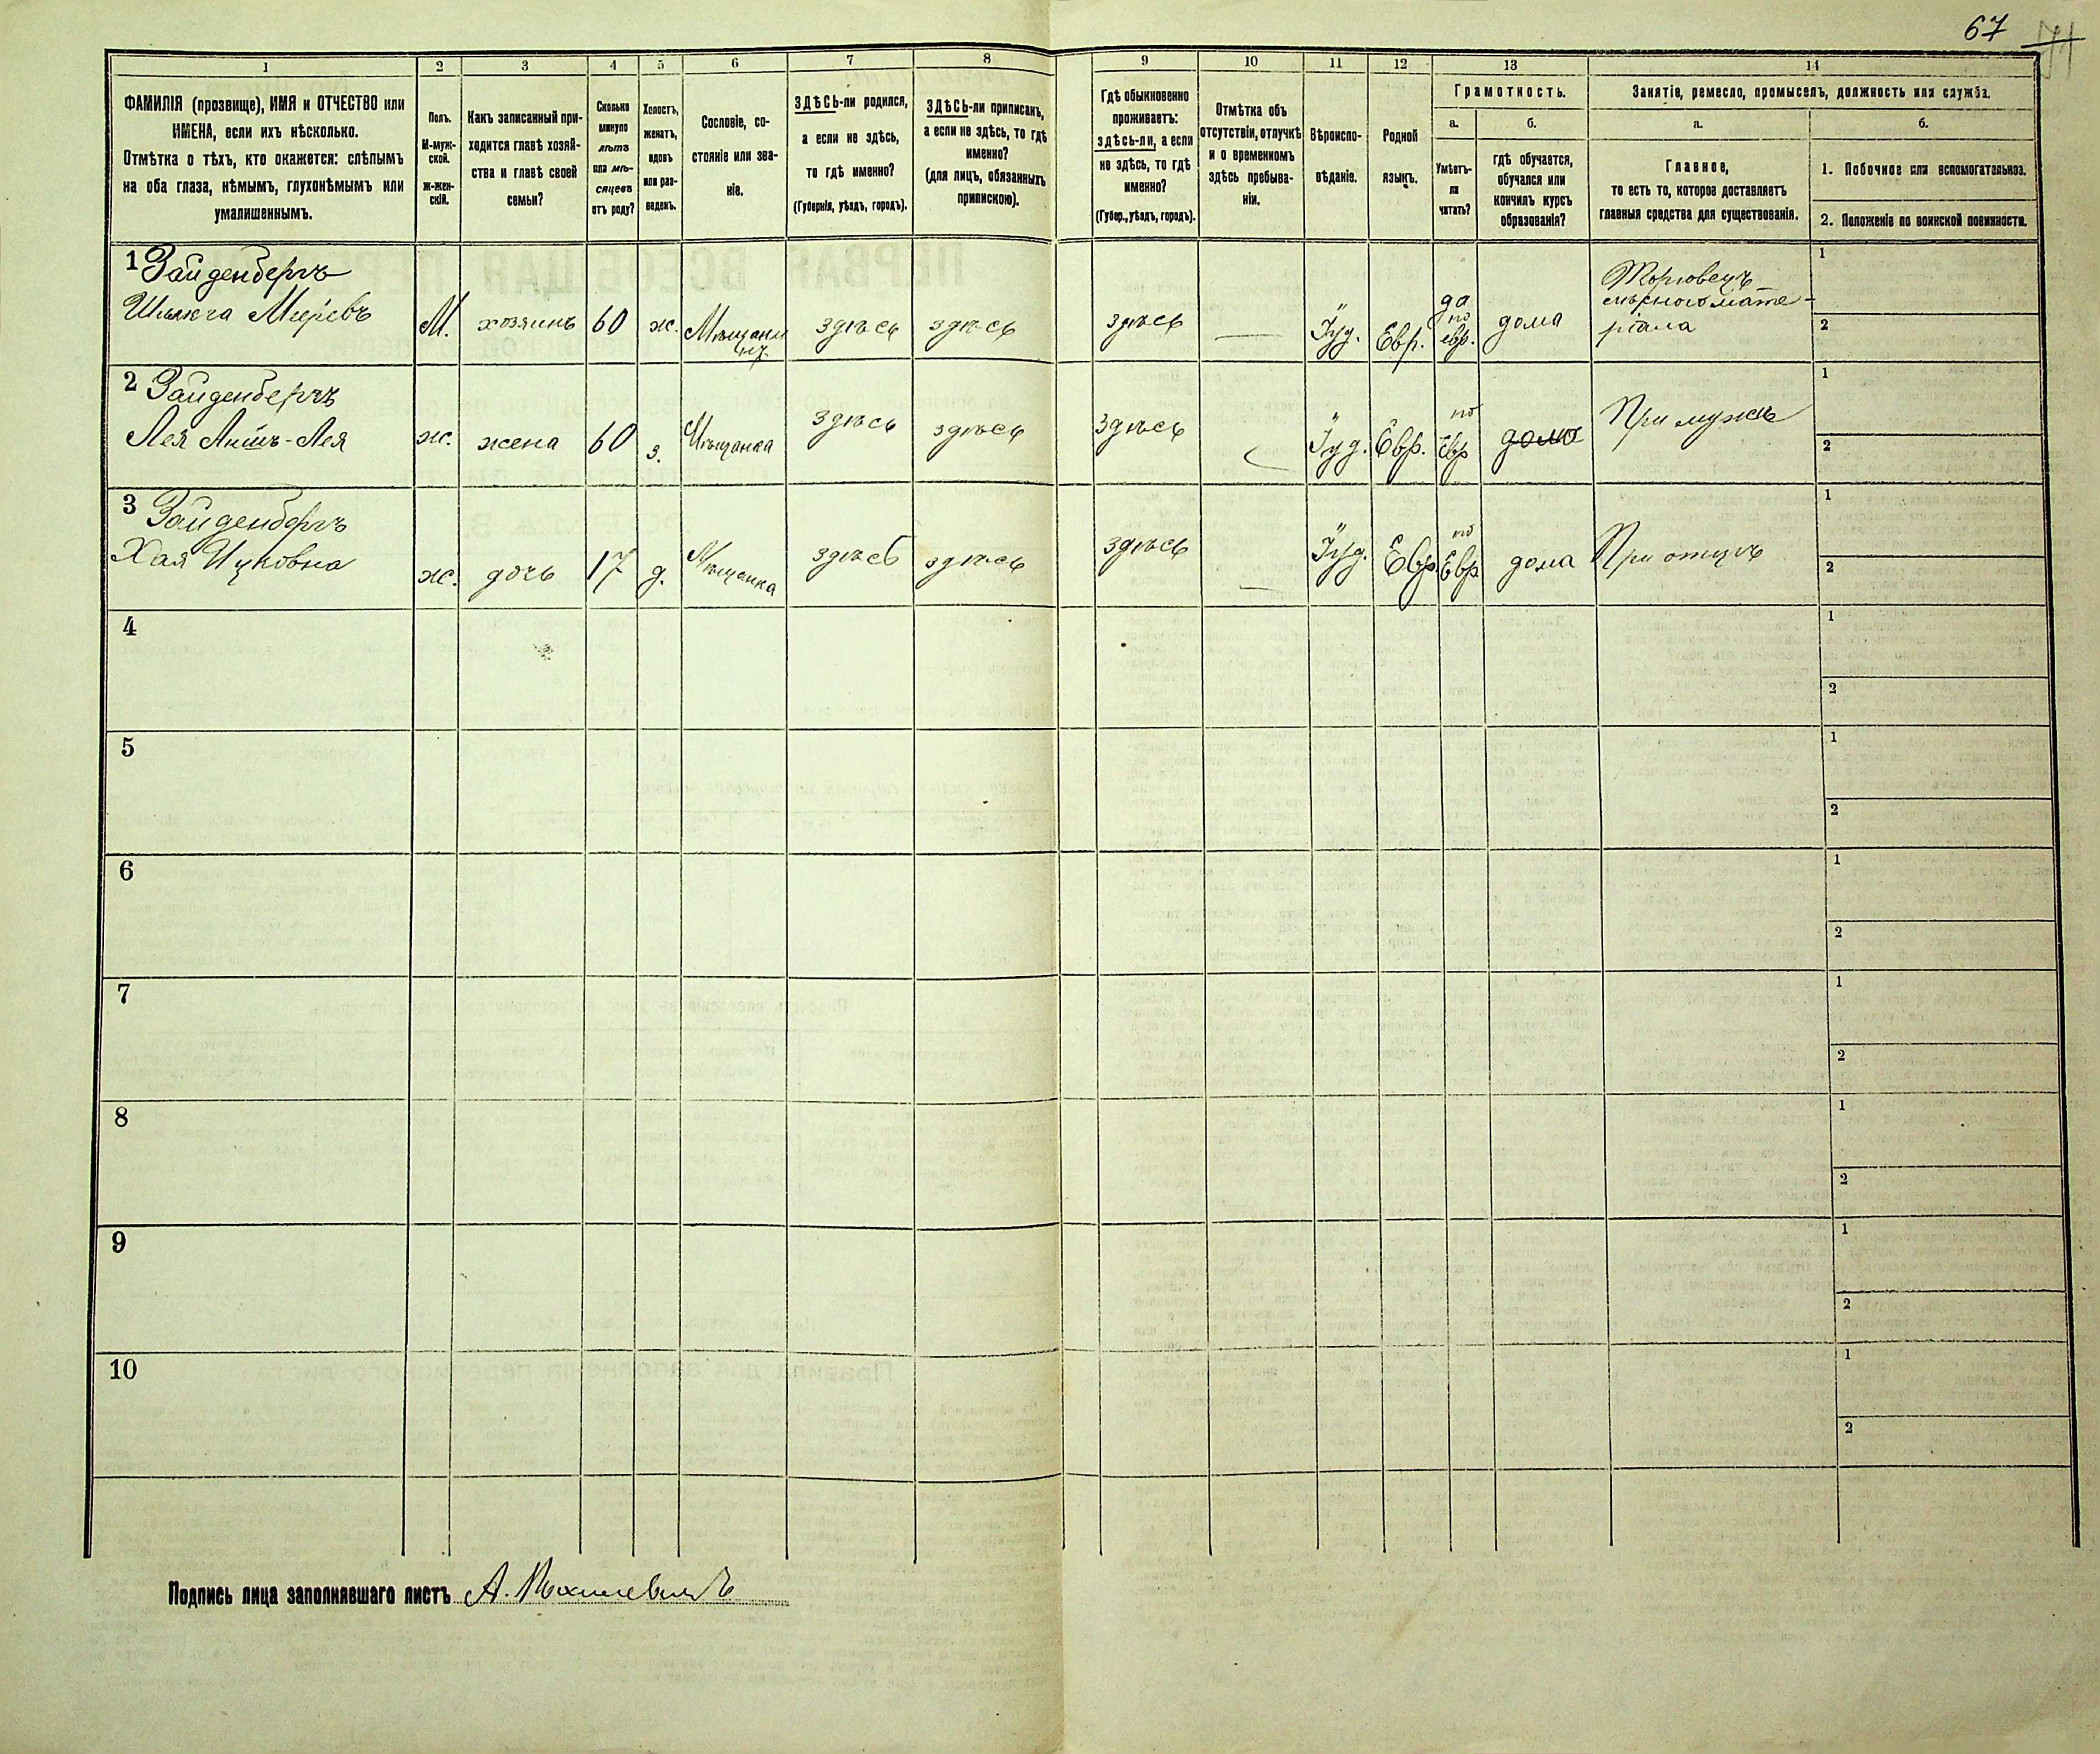 67
1 2 3 4 5 6 7 8 9 10 11 12 13 14
ФАМИЛІЯ (прозвище), ИМЯ и ОТЧЕСТВО или
ИМЕНА, если ихъ нѣсколько.
Отмѣтка о тѣхъ, кто окажется: слѣпымъ
на оба глаза, нѣмымъ, глухонѣмымъ или
умалишеннымъ.
Полъ.
М-муж-
ской.
Ж-жен-
скій.
Какъ записанный при-
ходится главѣ хозяй-
ства и главѣ своей
семьи?
Сколько
минуло
лѣтъ
или мѣ-
сяцевъ
отъ роду?
Холостъ,
женатъ,
вдовъ
или раз-
веденъ.
Сословіе, со-
стояніе или зва-
ніе.
ЗДѢСЬ-ли родился,
а если не здѣсь,
то гдѣ именно?
(Губернія, уѣздъ, городъ).
ЗДѢСЬ-ли приписанъ,
а если не здѣсь, то гдѣ
именно?
(для лицъ, обязанныхъ
припискою).
Гдѣ обыкновенно
проживаетъ:
здѣсь-ли, а если
не здѣсь, то гдѣ
именно?
(Губер., уѣздъ, городъ).
Отмѣтка объ
отсутствіи, отлучкѣ
и о временномъ
здѣсь пребыва-
ніи.
Вѣроиспо-
вѣданіе.
Родной
языкъ.
Грамотность.
а.
Умѣетъ-
ли
читать?
б.
гдѣ обучается,
обучался или
кончилъ курсъ
образованія?
Занятіе, ремесло, промыселъ, должность или служба.
а.
Главное,
то есть то, которое доставляетъ
главныя средства для существованія.
б.
1. Побочное или вспомогательное.
2. Положеніе по воинской повинности.
1 Зайденбергъ
Меровъ
М. хозяинъ 60 ж. Мѣщани
нъ
здѣсь здѣсь здѣсь Іуд. Евр.
да
по
евр.
дома
Торговецъ
мате-
ріала
1
2
2 Зайденбергъ
Лея -Лея
ж. жена 60 з. Мѣщанка здѣсь здѣсь здѣсь Іуд. Евр.
по
Евр
дома
При мужѣ
1
2
3 Зайденбергъ
Хая Ицковна
ж. дочь 17 д. Мѣщанка здѣсь здѣсь здѣсь Іуд. Евр.
по
Евр
дома
При отцѣ
1
2
4
1
2
5
1
2
6
1
2
7
1
2
8
1
2
9
1
2
10
1
2
Подпись лица заполнявшаго листъ А.